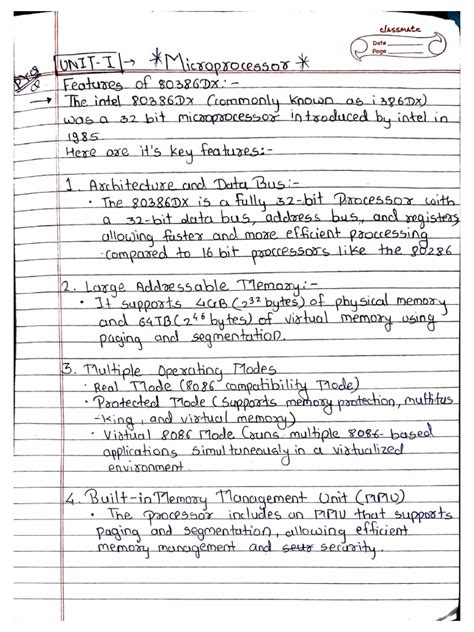 classmate
Date
Page
UNIT-I → * Microprocessor *
Features of 80386DX:-
→ The intel 80386DX (commonly known as i386DX)
was a 32 bit microprocessor introduced by intel in
1985.
Here are it's key features:-
1. Architecture and Data Bus:-
• The 80386DX is a fully 32-bit Processor with
a 32-bit data bus, address bus, and registers
allowing faster and more efficient proccessing
compared to 16 bit proccessors like the 80286
2. Large Addressable Memory:-
• It supports 4GB (2^32 bytes) of physical memory
and 64TB (2^46 bytes) of virtual memory using
paging and segmentation.
3. Multiple Operating Modes
• Real Mode (8086 compatibility Mode)
• Protected Mode (supports memory protection, multitas
-king, and virtual memory)
• Virtual 8086 Mode (runs multiple 8086-based
applications simultuneously in a virtualized
environment.
4. Built-in Memory Management Unit (MMU)
• The processor includes an MMU that supports
paging and segmentation, allowing efficient
memory management and security.